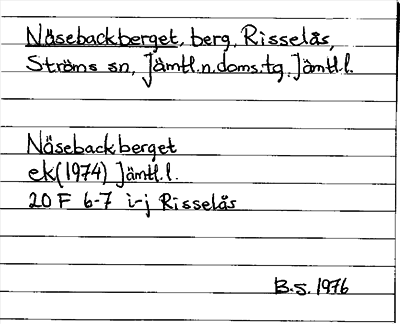 Näsebackberget, berg, Risselås,
Ströms sn, Jämtl.n.doms.tg, Jämtl.l.
Näsebackberget
ek(1974) Jämtl.l.
20 F 6-7 i-j Risselås
B.S. 1976